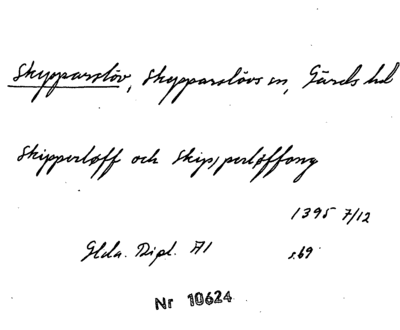 Skypparslöv, Skypparslövs sn, Gärds hd
Skipperløff och Skip,perløffong
1395 7/12
Glda. Dipl. A1 s.69
Nr 10624